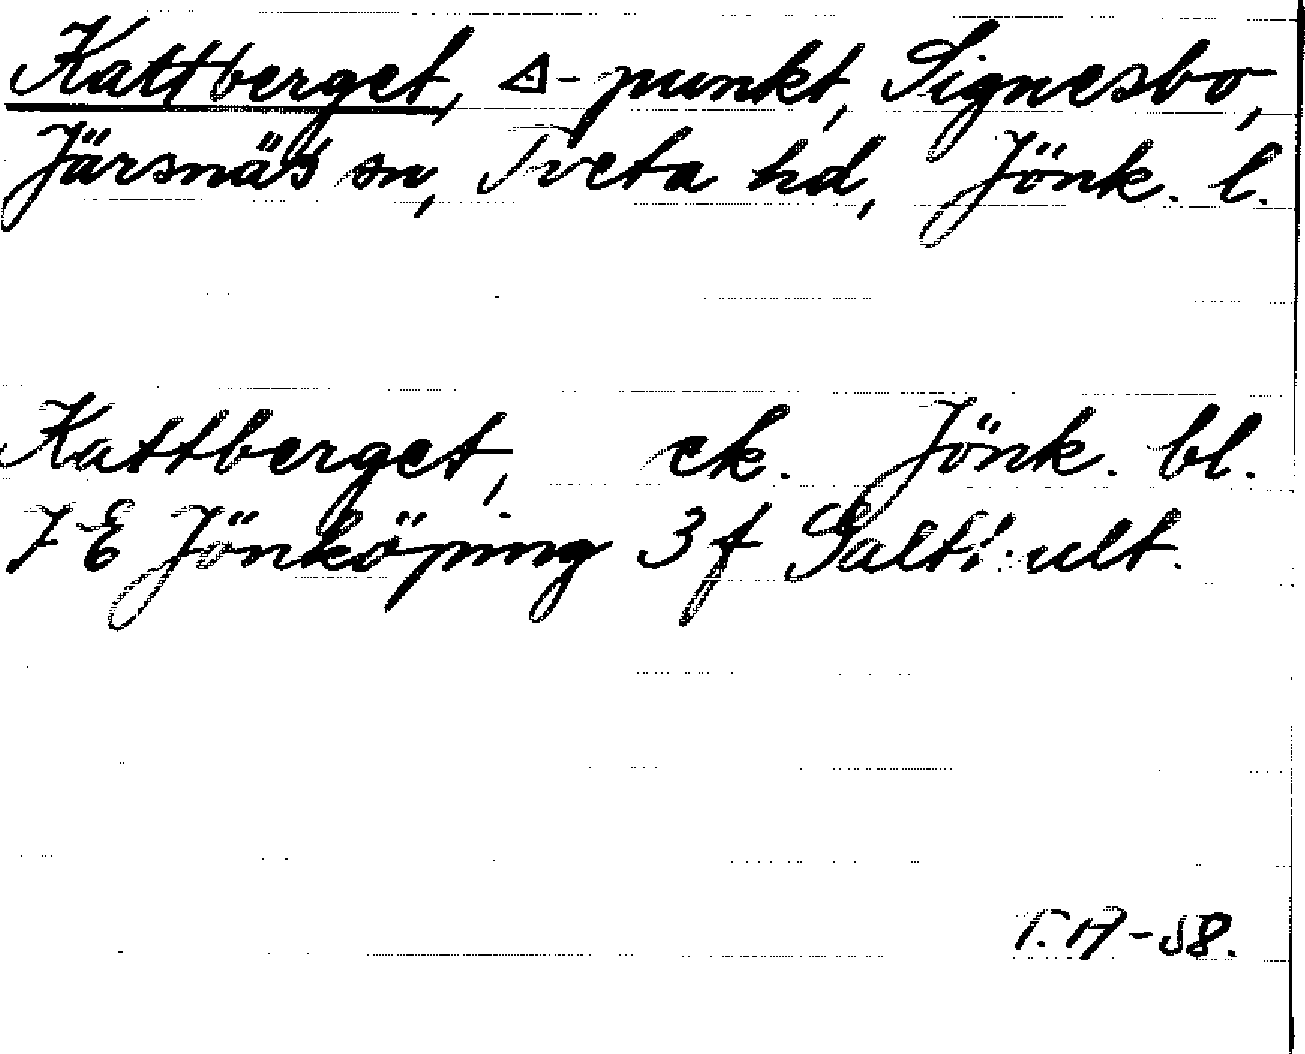 Kattberget, △-punkt, Signesbo,
Järsnäs sn, Tveta hd, Jönk. l.
Kattberget, ek. Jönk. bl.
7 E Jönköping 3 f ult.
T.A-58.